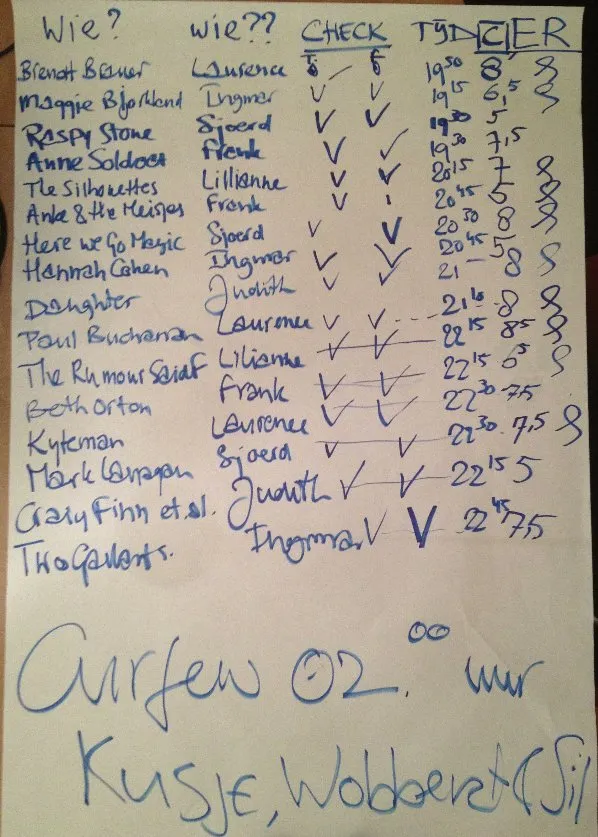 Wie? wie?? CHECK TIJD CIJFER
Laurence 19 50 8
Maggie Bjorklund Ingmar 19 15 6,5
Raspy Stone Sjoerd 19 30 5
Anne Soldaat Frenk 19 30 7,5
The Silhouettes Lillianne 20 15 7
Anke & the Meisjes Frank 20 45 5
Here we Go Magic Sjoerd 20 30 8
Hannah Cohen Ingmar 20 45 5
Daughter Judith 21 - 8
Paul Buchanan Laurence 21 10 - 8
The Rumour Said F Lilianne 22 15 8 5
Beth Orton Frank 22 15 6 5
Kyteman Laurence 22 30 - 7,5
Mark Lanegan Sjoerd 22 30 - 7,5
Craig Finn et al. Judith 22 15 5
Two Gallants. Ingmar 22 45 7,5
Curfew 02. 00 uur
Kusje,